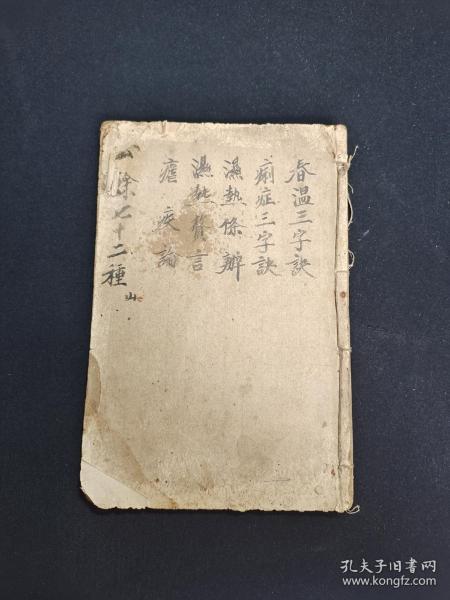 春温三字訣
痢症三字訣
濕熱條辨
濕熱贅言
瘧疾論
公餘七十二種
山
孔夫子旧书网
www.kongfz.com